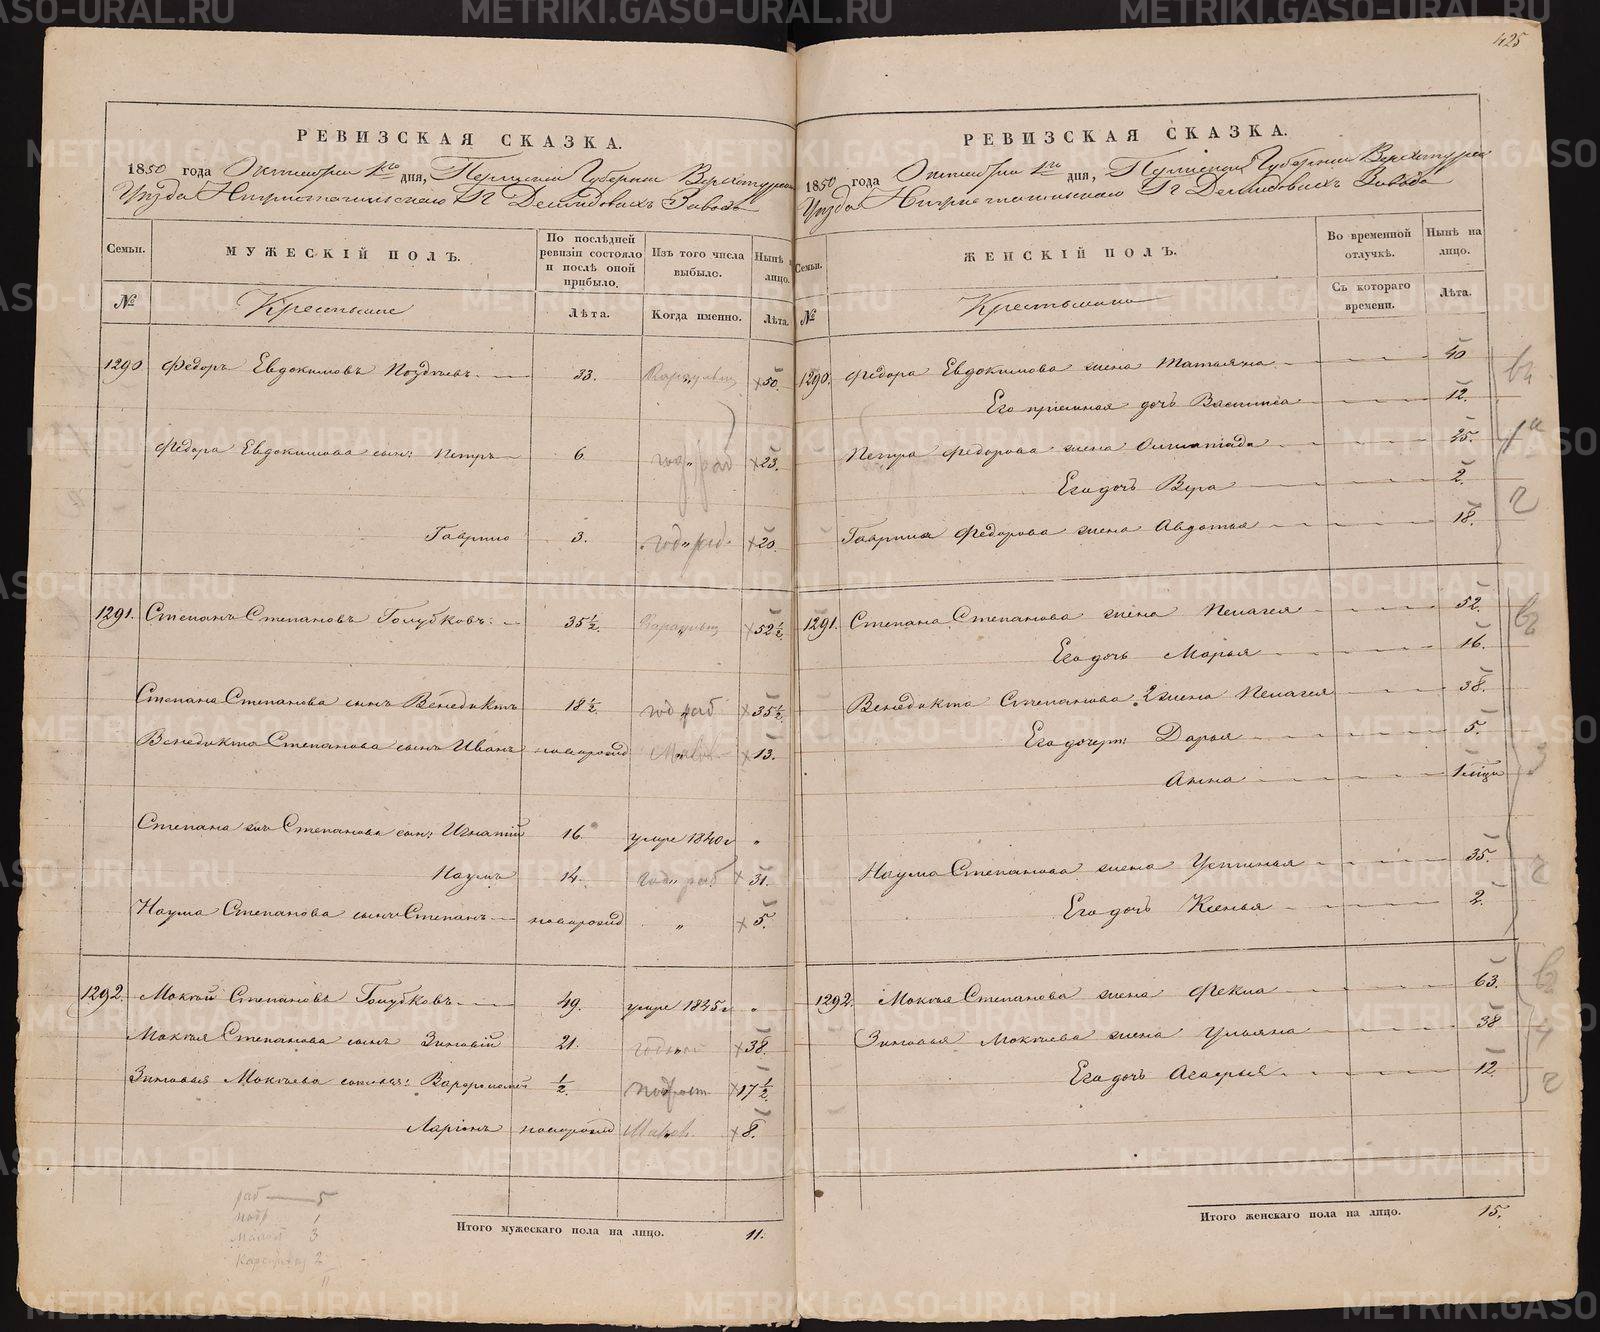 425
РЕВИЗСКАЯ СКАЗКА.
1850 года Октября 1го дня, Пермской Губернии Верхотурскаго
Уѣзда Нижнетагильскаго Гг Демидовыхъ Завода
Семьи.
МУЖЕСКІЙ ПОЛЪ.
По послѣдней ревизіи состояло и послѣ оной прибыло.
Изъ того числа выбыло.
Нынѣ на лицо.
№
Крестьяне
Лѣта.
Когда именно.
Лѣта.
1290. Федоръ Евдокимовъ Поздѣевъ 33. Караульщ 50.
Федора Евдокимова сын: Петръ 6. год. раб 23.
Гаврило 3. год. раб. 20.
1291. Степанъ Степановъ Голубковъ. 35½. Караульщ 52½
Степана Степанова сынъ Венедиктъ 18½. год раб 35½.
Венедикта Степанова сынъ Иванъ новорожд 13.
Степана Степанова сын: Игнатій 16. умре 1840 г "
Наумъ 14. год. раб 31.
Наума Степанова сынъ Степанъ новорожд " 5.
1292. Мокѣй Степановъ Голубковъ 49. умре 1845 г "
Мокѣя Степанова сынъ Зиновій 21. 38.
Зиновья Мокѣева сыновья: Варфоломей ½. подрост 17½.
Ларіонъ новорожд Малол. 8.
раб 5
подр 1
Малол 3
Караульщ 2
11
Итого мужескаго пола на лицо. 11.
РЕВИЗСКАЯ СКАЗКА.
1850 года Октября 1го дня, Пермской Губерніи Верхотурскаго
Уѣзда Нижнетагильскаго Гг Демидовыхъ Завода
Семьи.
ЖЕНСКІЙ ПОЛЪ.
Во временной отлучкѣ.
Нынѣ на лицо.
№
Крестьяне
Съ котораго времени.
Лѣта.
1290. Федора Евдокимова жена Татьяна 40
Его пріемная дочь Василиса 12.
Петра Федорова жена Олимпіада 25.
Его дочь Вера 2.
Гаврила Федорова жена Авдотья 18.
1291. Степана Степанова жена Пелагея 52.
Его дочь Марья 16.
Венедикта Степанова 2 жена Пелагея 38.
Его дочери: Дарья 5.
Анна 1 мѣсяц
Наума Степанова жена Устинья 35.
Его дочь Ксенья 2.
1292. Мокѣя Степанова жена Фекла 63.
Зиновья Мокѣева жена Ульяна 38
Его дочь Агафья 12.
Итого женскаго пола на лицо. 15.
METRIKI.GASO-URAL.RU